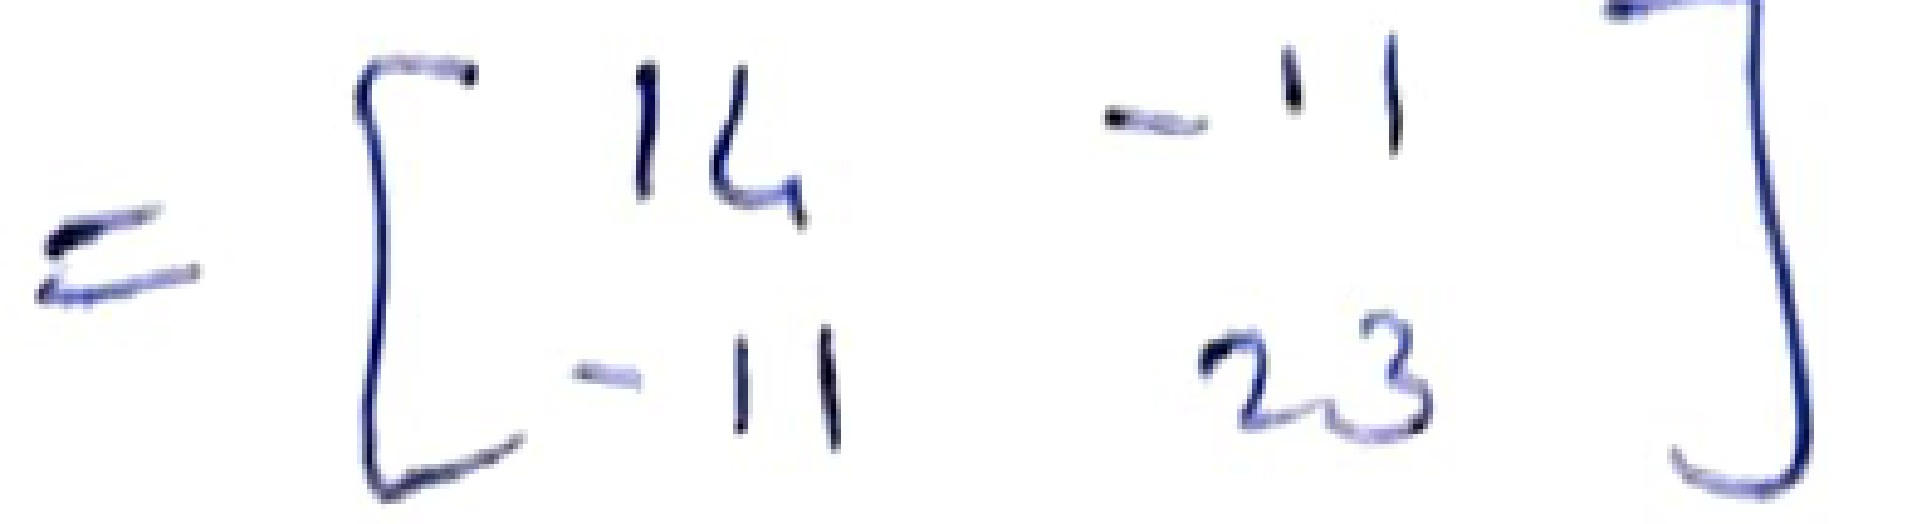 = [ 14 -11 ]
-11 23